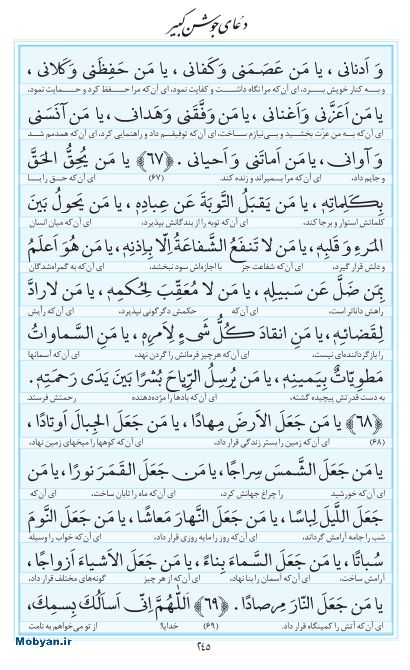 دعای جوشن کبیر
وَ اَدنانی ، یا مَن عَصَمَنی وَکَفانی ، یا مَن حَفِظَنی وَکَلانی ،
و به کنار خویش برد، ای آن‌که مرا نگاه داشت و کفایت نمود، ای آن‌که مرا حفظ کرد و حمایت نمود،
یا مَن اَعَزَّنی وَاَغنانی ، یا مَن وَفَّقَنی وَهَدانی، یا مَن آنَسَنی
ای آن‌که به من عزّت بخشید و بی‌نیازم ساخت، ای آن‌که توفیقم داد و راهنمایی کرد، ای آن‌که همدمم شد
وَ آوانی، یا مَن اَماتَنی وَ اَحیانی . ﴿۶۷﴾ یا مَن یُحِقُّ الحَقَّ
و جایم داد، ای آن‌که مرا بمیراند و زنده کند. (۶۷) ای آن‌که حق را با
بِکَلِماتِهٖ، یا مَن یَقبَلُ التَّوبَةَ عَن عِبادِهٖ، یا مَن یَحولُ بَینَ
کلماتش استوار و برجا کند، ای آن‌که توبه را از بندگانش بپذیرد، ای آن‌که میان انسان
المَرءِ وَ قَلبِهٖ، یا مَن لا تَنفَعُ الشَّفاعَةُ اِلّا بِاِذنِهٖ، یا مَن هُوَ اَعلَمُ
و دلش قرار گیرد، ای آن‌که شفاعت جز با اجازه‌اش سود نبخشد، ای آن‌که به گمراه‌شدگان
بِمَن ضَلَّ عَن سَبیلِهٖ، یا مَن لا مُعَقِّبَ لِحُکمِهٖ، یا مَن لا رادَّ
راهش داناتر است، ای آن‌که حکمش دگرگونی نپذیرد، ای آن‌که رأیش
لِقَضائِهٖ، یا مَنِ انقادَ کُلُّ شَیءٍ لِاَمرِهٖ، یا مَنِ السَّماواتُ
را بازگرداننده‌ای نیست، ای آن‌که هر چیز فرمانش را گردن نهد، ای آن‌که آسمانها
مَطوِیّاتٌ بِیَمینِهٖ، یا مَن یُرسِلُ الرِّیاحَ بُشرًا بَینَ یَدَی رَحمَتِهٖ.
به دست قدرتش پیچیده گشته، ای آن‌که بادها را مژده‌دهنده رحمتش فرستد.
﴿۶۸﴾ یا مَن جَعَلَ الاَرضَ مِهادًا، یا مَن جَعَلَ الجِبالَ اَوتادًا ،
(۶۸) ای آن‌که زمین را بستر زندگی قرار داد، ای آن‌که کوهها را میخهای زمین نهاد،
یا مَن جَعَلَ الشَّمسَ سِراجًا، یا مَن جَعَلَ القَمَرَ نورًا ، یا مَن
ای آن‌که خورشید را چراغ جهانش کرد، ای آن‌که ماه را تابان ساخت، ای آن‌که
جَعَلَ اللَّیلَ لِباسًا، یا مَن جَعَلَ النَّهارَ مَعاشًا، یا مَن جَعَلَ النَّومَ
شب را جامه آرامش گرداند، ای آن‌که روز را مایه روزی قرار داد، ای آن‌که خواب را وسیله
سُباتًا، یا مَن جَعَلَ السَّماءَ بِناءً، یا مَن جَعَلَ الاَشیاءَ اَزواجًا،
آرامش ساخت، ای آن‌که آسمان را بنا نهاد، ای آن‌که از هر چیز گونه‌های مختلف قرار داد،
یا مَن جَعَلَ النّارَ مِرصادًا . ﴿۶۹﴾ اَللّٰهُمَّ اِنّی اَساَلُکَ بِسمِکَ،
ای آن‌که آتش را کمینگاه قرار داد. (۶۹) خدایا! از تو می‌خواهم به نامت
Mobyan.ir
۲۴۵